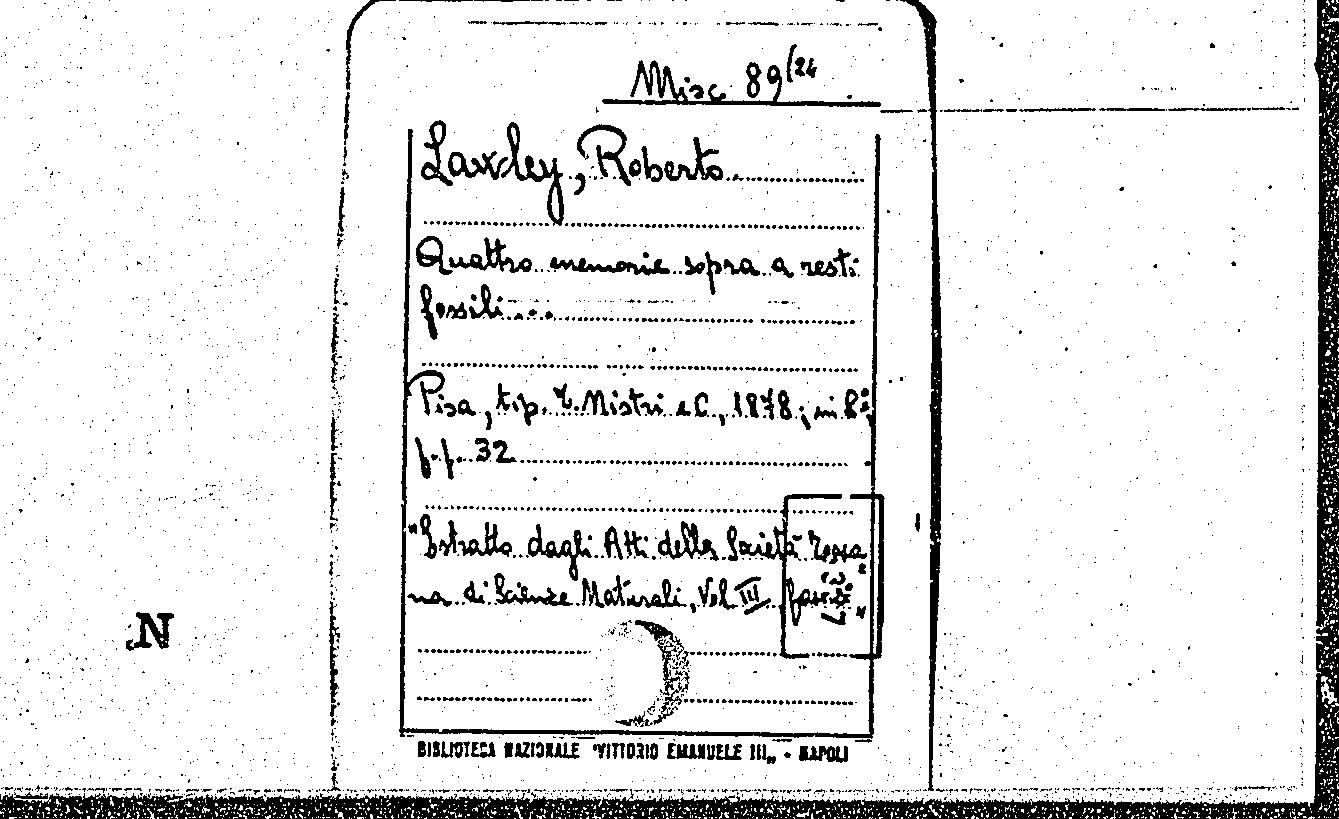 Misc 89(24
Lawley, Roberto.
Quattro memorie sopra a resti
fossili...
Pisa, tip. T. Nistri e C., 1878; in 8º,
p.p. 32
"Estratto dagli Atti della Società Tosca
na di Scienze Naturali, Vol III
N
BIBLIOTECA NAZIONALE "VITTORIO EMANUELE III„ - NAPOLI